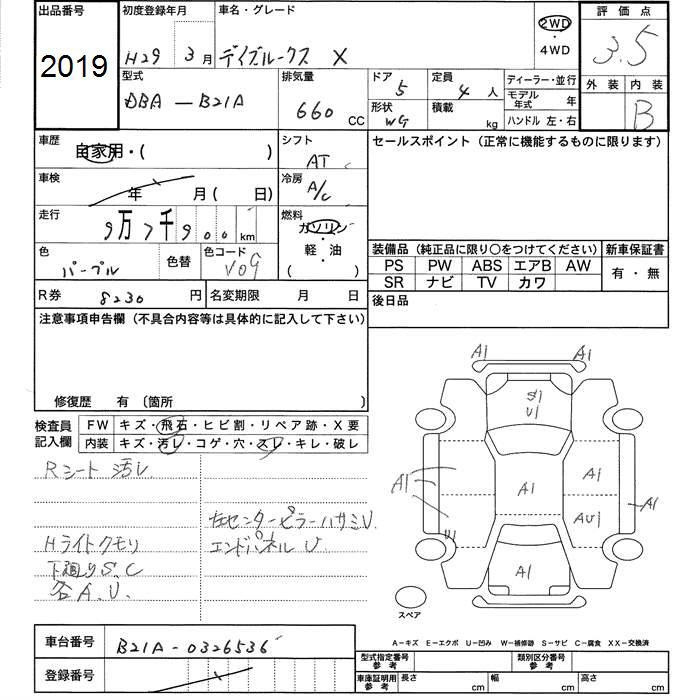 出品番号 初度登録年月 車名・グレード 2WD 評価点
2019 H29 3月 デイズルークス X ・4WD 3.5
型式 排気量 ドア 定員 ディーラー・並行 外装 内装
DBA-B21A 660 CC 5 4人 モデル年式 年 B
形状 WG 積載 kg ハンドル 左・右
車歴 自家用・( ) シフト AT セールスポイント(正常に機能するものに限ります)
車検 年 月( 日) 冷房 A/C
走行 9万7千900km 燃料 ガソリン・軽・油
色 パープル 色替 色コード V09 ( )
装備品(純正品に限り○をつけてください) 新車保証書
PS PW ABS エアB AW 有・無
SR ナビ TV カワ
R券 8230円 名変期限 月 日 後日品
注意事項申告欄(不具合内容等は具体的に記入して下さい)
修復歴 有〔箇所 〕
検査員記入欄 FW キズ・飛石・ヒビ割・リペア跡・X要
内装 キズ・汚レ・コゲ・穴・スレ・キレ・破レ
Rシート 汚レ
左センターピラーハサミU.
Hライトクモリ エンドパネル U
下廻りS.C
各A.U.
A1 A1
S1
U1
A1 A1 A1 A1
U1 AU1
A1
スペア
車台番号 B21A-0326536
登録番号
A-キズ E-エクボ U-凹み W-補修跡 S-サビ C-腐食 XX-交換済
型式指定番号 参考 類別区分番号 参考
車庫証明用 参考 長さ cm 幅 cm 高さ cm